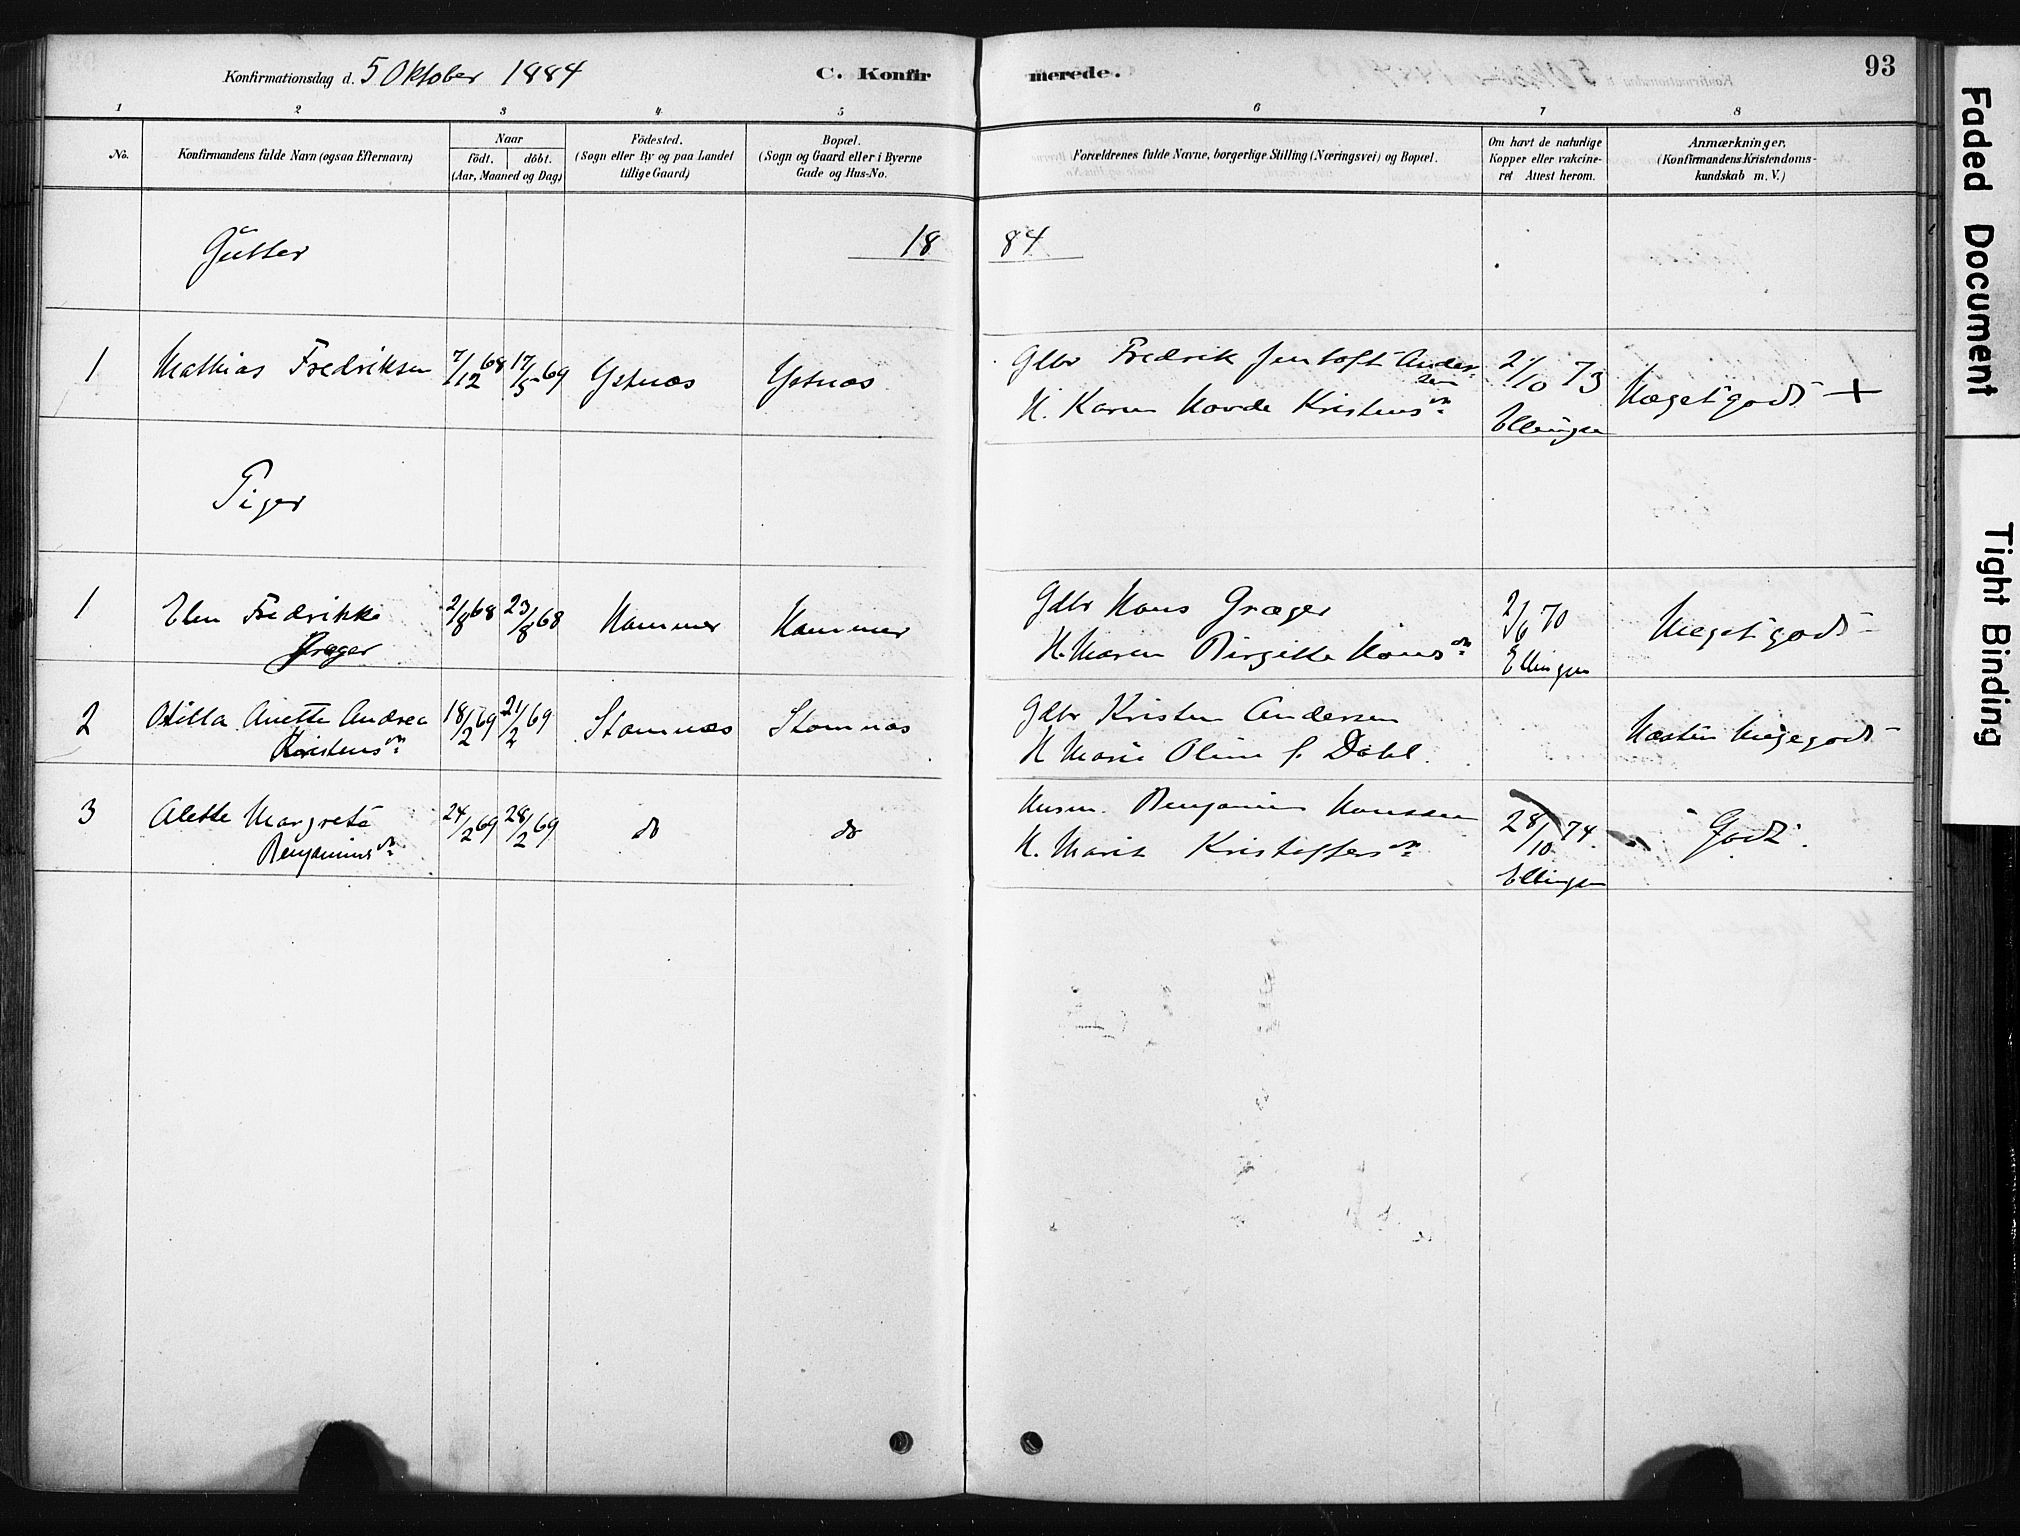 Konfirmationsdag d. 5 Oktober 1884
C. Konfirmerede.
93
1 2 3 4 5 6 7 8
No.
Konfirmandens fulde Navn (ogsaa Efternavn)
Naar
födt. döbt.
(Aar, Maaned og Dag)
Födested.
(Sogn eller By og paa Landet
tillige Gaard)
Bopæl.
(Sogn og Gaard eller i Byerne
Gade og Hus-No.
Forældrenes fulde Navne, borgerlige Stilling (Næringsvei) og Bopæl.
Om havt de naturlige
Kopper eller vakcine-
ret Attest herom.
Anmærkninger,
(Konfirmandens Kristendoms-
kundskab m. V.)
Gutter
18 84
1 Mathias Fredriksen 7/12 68 17/5 69 Ystnæs Ystnæs
Gdbr Fredrik Jentoft Ander-
sen
H. Karen Hovde Kristensdr
2/10 73
Ellingsen
Meget godt +
Piger
1 Elen Fredrikke
Græger
2/8 68 23/8 68 Hammer Hammer
Gdbr Hans Græger
H. Maren Birgitte Hansdr
2/6 70
Ellingsen
Meget godt
2 Otilla Anette Andrea
Kristensdr
18/2 69 21/2 69 Stamnæs Stamnæs
Gdbr Kristen Andersen
H Marie Oline f. Dahl.
Næsten Megegodt
3 Alette Margrete
Benjaminsdr
24/2 69 28/2 69 do do
Husm. Benjamin Hanssen
H. Marit Kristoffersdr
28/10 74.
Ellingsen
Godt.
Faded Document
Tight Binding